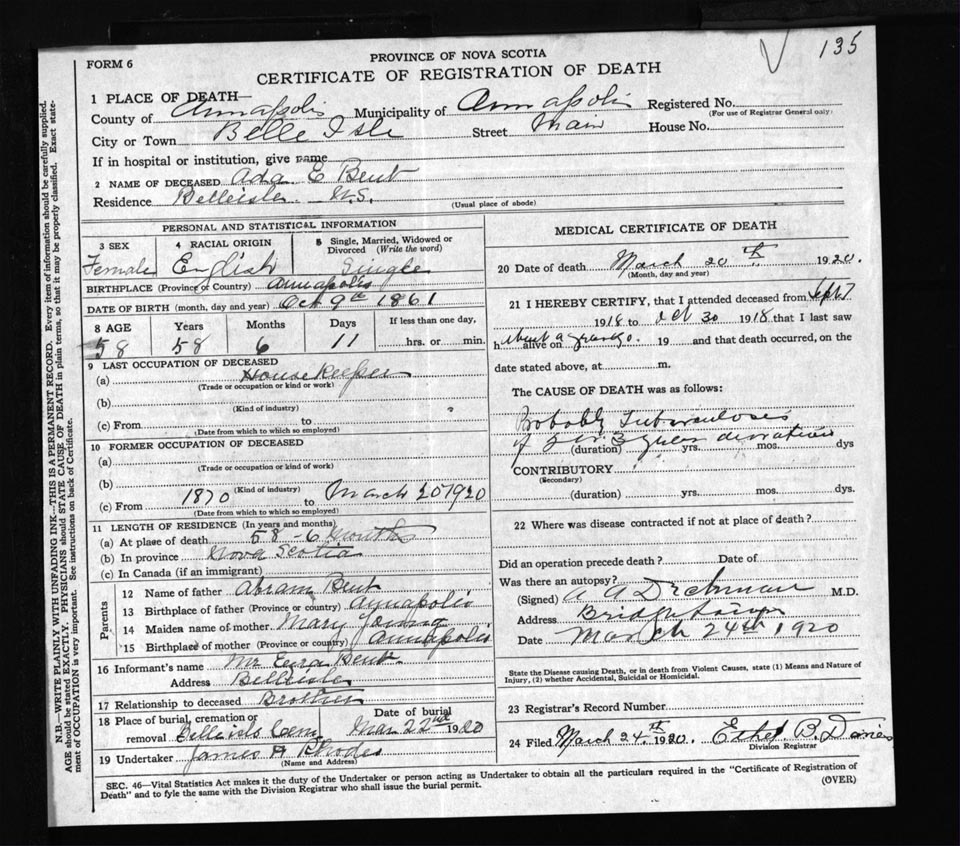 135
FORM 6
PROVINCE OF NOVA SCOTIA
CERTIFICATE OF REGISTRATION OF DEATH
1 PLACE OF DEATH—
County of Annapolis Municipality of Annapolis Registered No.
(For use of Registrar General only)
City or Town Belle Isle Street Main House No.
If in hospital or institution, give name
2 NAME OF DECEASED Ada E Bent
Residence Belleisle N.S.
(Usual place of abode)
PERSONAL AND STATISTICAL INFORMATION
3 SEX 4 RACIAL ORIGIN 5 Single, Married, Widowed or Divorced (Write the word)
Female English Single
BIRTHPLACE (Province or Country) Annapolis
DATE OF BIRTH (month, day and year) Oct 9th 1861
8 AGE Years Months Days If less than one day,
58 58 6 11 hrs. or min.
9 LAST OCCUPATION OF DECEASED
(a) Housekeeper
(Trade or occupation or kind or work)
(b)
(Kind of industry)
(c) From to
(Date from which to which so employed)
10 FORMER OCCUPATION OF DECEASED
(a)
(Trade or occupation or kind of work)
(b)
(Kind of industry)
(c) From 1870 to March 20 1920
(Date from which to which so employed)
11 LENGTH OF RESIDENCE (In years and months)
(a) At place of death 58 - 6 months
(b) In province Nova Scotia
(c) In Canada (if an immigrant)
Parents
12 Name of father Abram Bent
13 Birthplace of father (Province or country) Annapolis
14 Maiden name of mother Mary Young
15 Birthplace of mother (Province or country) Annapolis
16 Informant's name Mr Ezra Bent
Address Belleisle
17 Relationship to deceased Brother
18 Place of burial, cremation or removal Cem Date of burial Mar 22nd 1920
19 Undertaker James H Rhodes
(Name and Address)
MEDICAL CERTIFICATE OF DEATH
20 Date of death March 20th 1920.
(Month, day and year)
21 I HEREBY CERTIFY, that I attended deceased from Sept 7
1918 to Oct 30 1918 that I last saw
h alive on about a year ago. 19 and that death occurred, on the
date stated above, at m.
The CAUSE OF DEATH was as follows:
Probably Tuberculosis
of 2 or 3 years duration
(duration) yrs. mos. dys
CONTRIBUTORY
(Secondary)
(duration) yrs. mos. dys.
22 Where was disease contracted if not at place of death?
Did an operation precede death? Date of
Was there an autopsy?
(Signed) A A M.D.
Address Bridgetown
Date March 24th 1920
State the Disease causing Death, or in death from Violent Causes, state (1) Means and Nature of
Injury, (2) whether Accidental, Suicidal or Homicidal.
23 Registrar's Record Number
24 Filed March 24th 1920. Ethel B.
Division Registrar
SEC. 46—Vital Statistics Act makes it the duty of the Undertaker or person acting as Undertaker to obtain all the particulars required in the "Certificate of Registration of
Death" and to fyle the same with the Division Registrar who shall issue the burial permit.
(OVER)
N.B.—WRITE PLAINLY WITH UNFADING INK—THIS IS A PERMANENT RECORD. Every item of information should be carefully supplied.
AGE should be stated EXACTLY. PHYSICIANS should STATE CAUSE OF DEATH in plain terms, so that it may be properly classified. Exact state-
ment of OCCUPATION is very important. See instructions on back of Certificate.